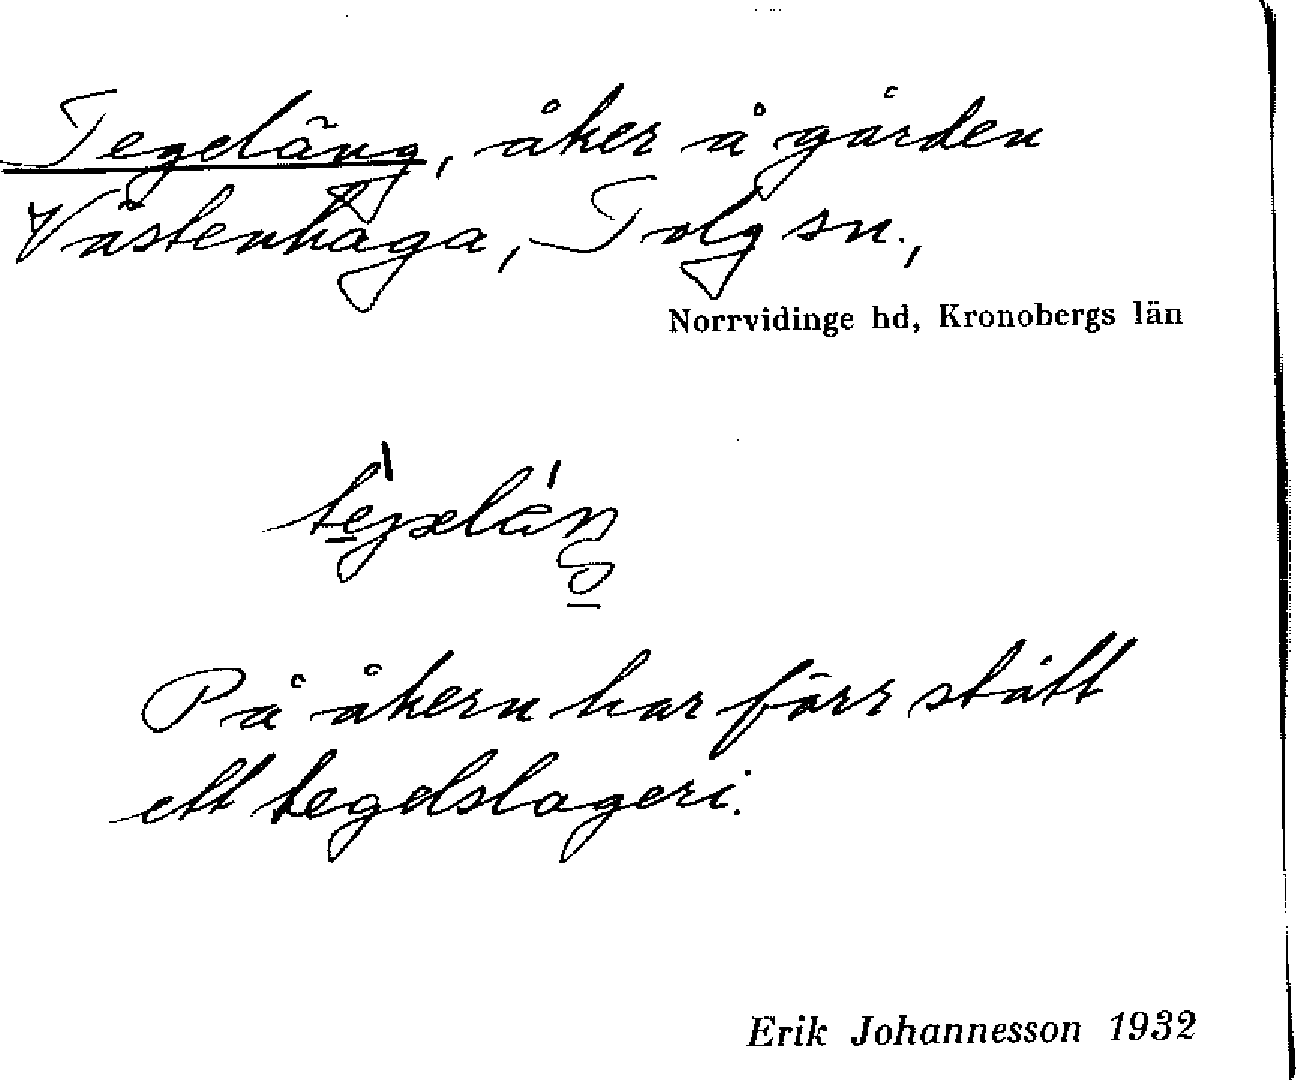 Tegeläng, åker å gården
Västenhaga, Tolg sn.,
Norrvidinge hd, Kronobergs län
På åkern har förr stått
ett tegelslageri.
Erik Johannesson 1932